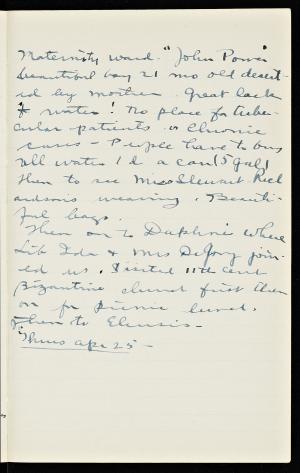 Maternity ward. "John Power"
beautiful boy 21 mo old desert-
ed by mother. Great lack
of water! No place for tuber-
cular patients or Chronic
cases - People have to buy
all water 1 d a can (5 gal)
Then to see Miss Stewart Rich
ardsons weaving. Beauti-
ful bags.
Then on to Daphni where
Lib Ida & Mrs DeJong join-
ed us. Visited 11th cent
Byzantine church first then
on for picnic lunch.
Then to Eleusis -
Thurs Apr 25 -